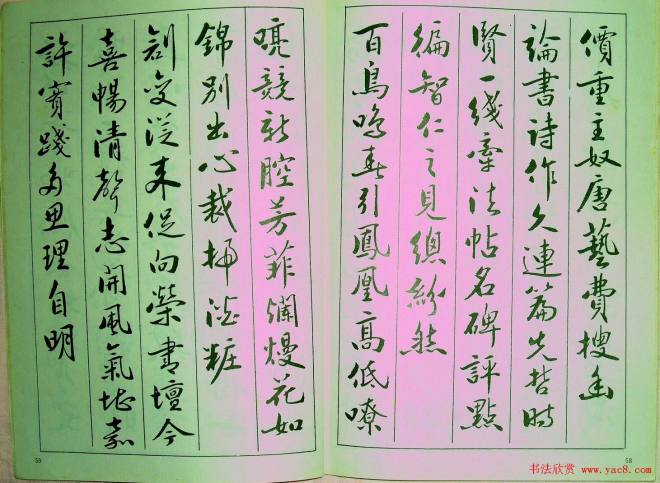 價重主奴唐藝費搜
論書詩作久連篇先哲時
賢一線牽法帖名碑評點
徧智仁之見總紛然
百鳥鳴春引鳳凰高低嘹
喨競新腔芳菲爛熳花如
錦別出心裁掃澁粧
創變從來促向榮書壇今
喜暢清聲志開風氣堪嘉
許實踐多思理自明
59
58
书法欣赏 www.yac8.com